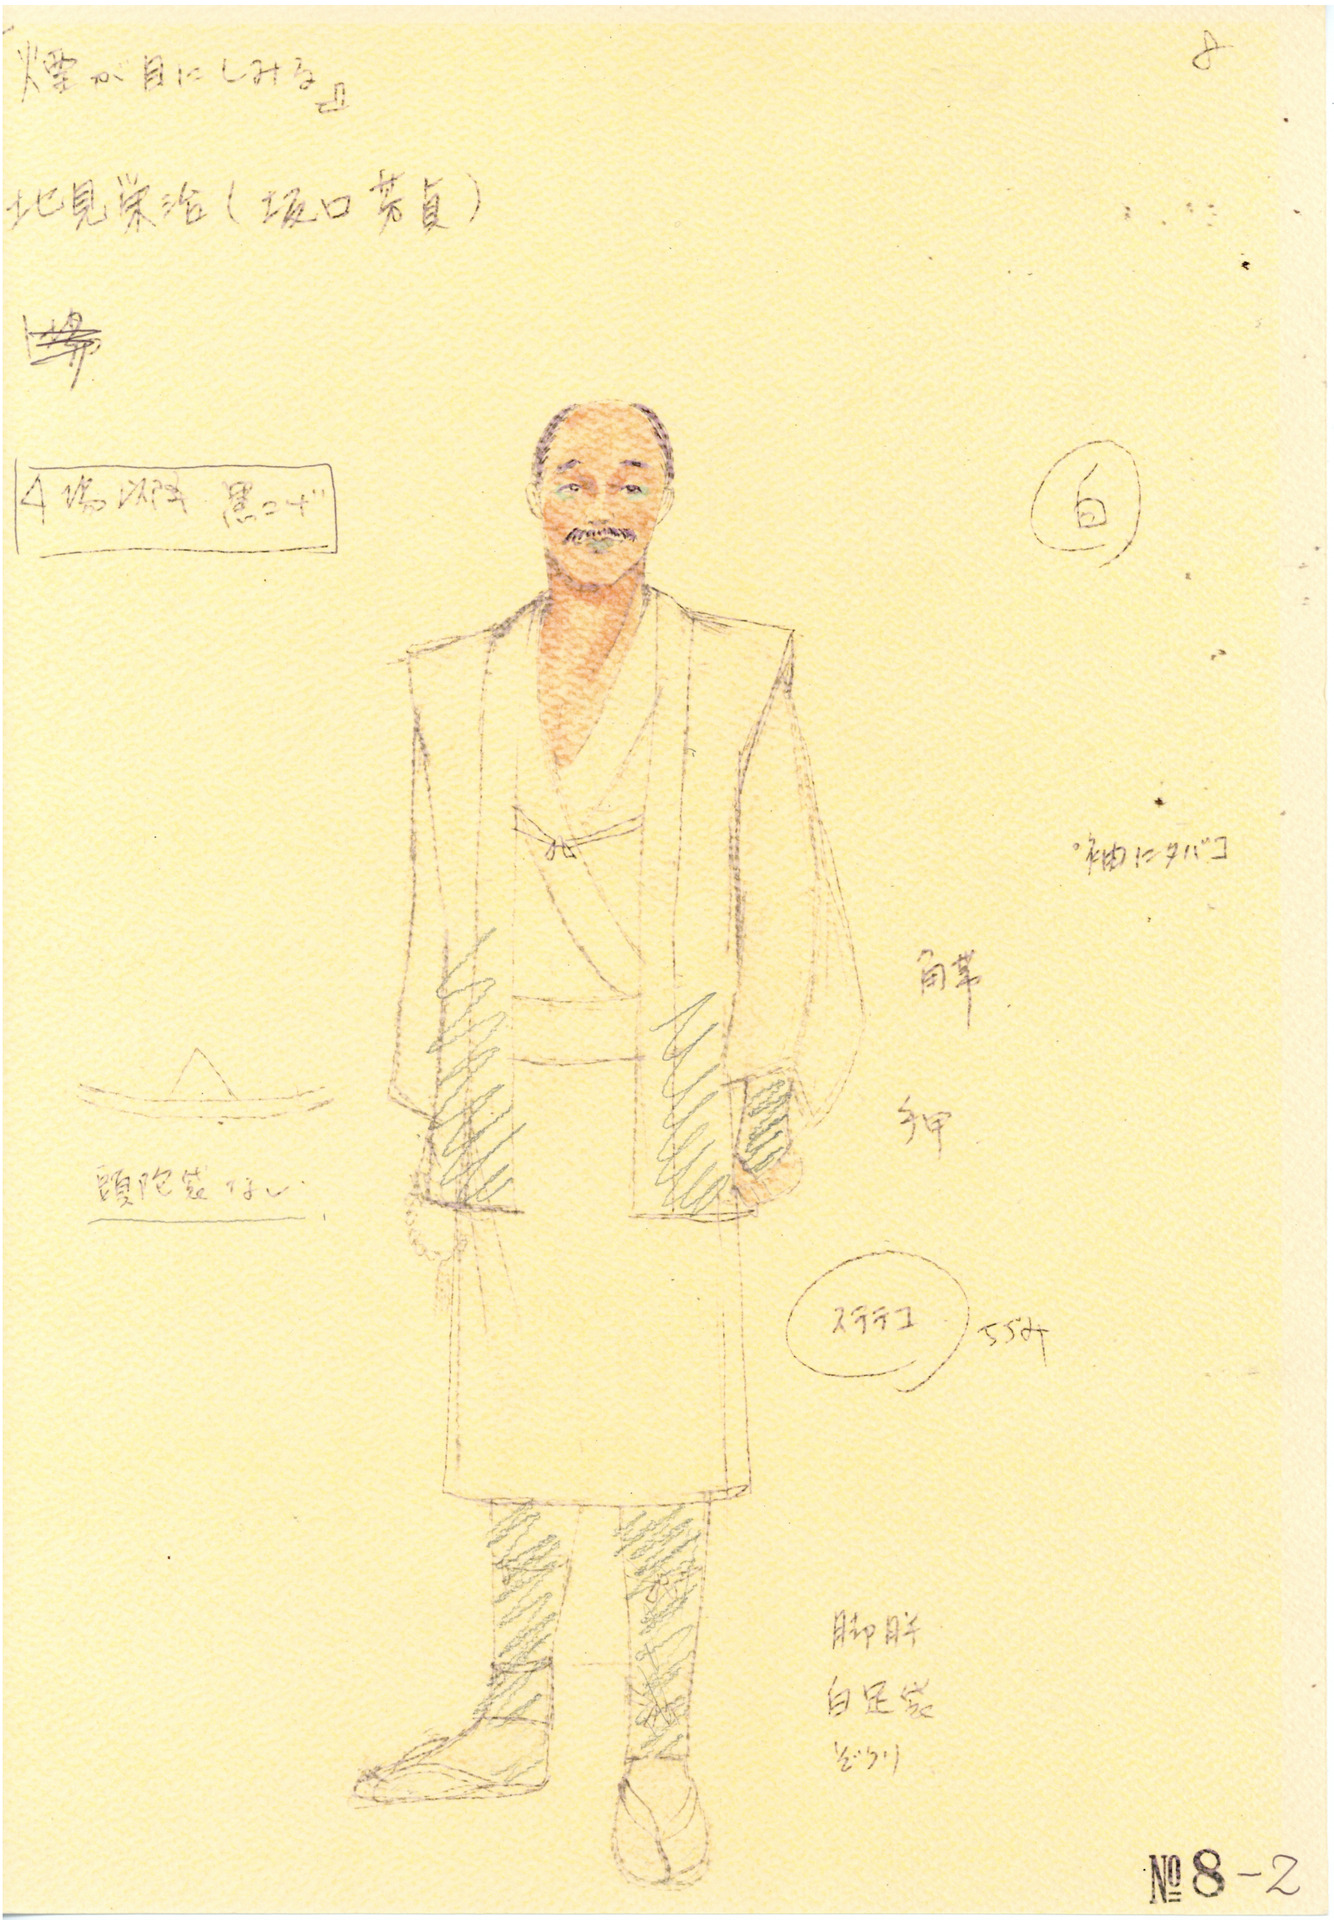 『煙が目にしみる』
8
北見栄治(坂口芳貞)
4場以降 黒コゲ
白
・袖にタバコ
角帯
手甲
頭陀袋なし
ステテコ ちぢみ
脚胖
白足袋
ぞうり
№8-2